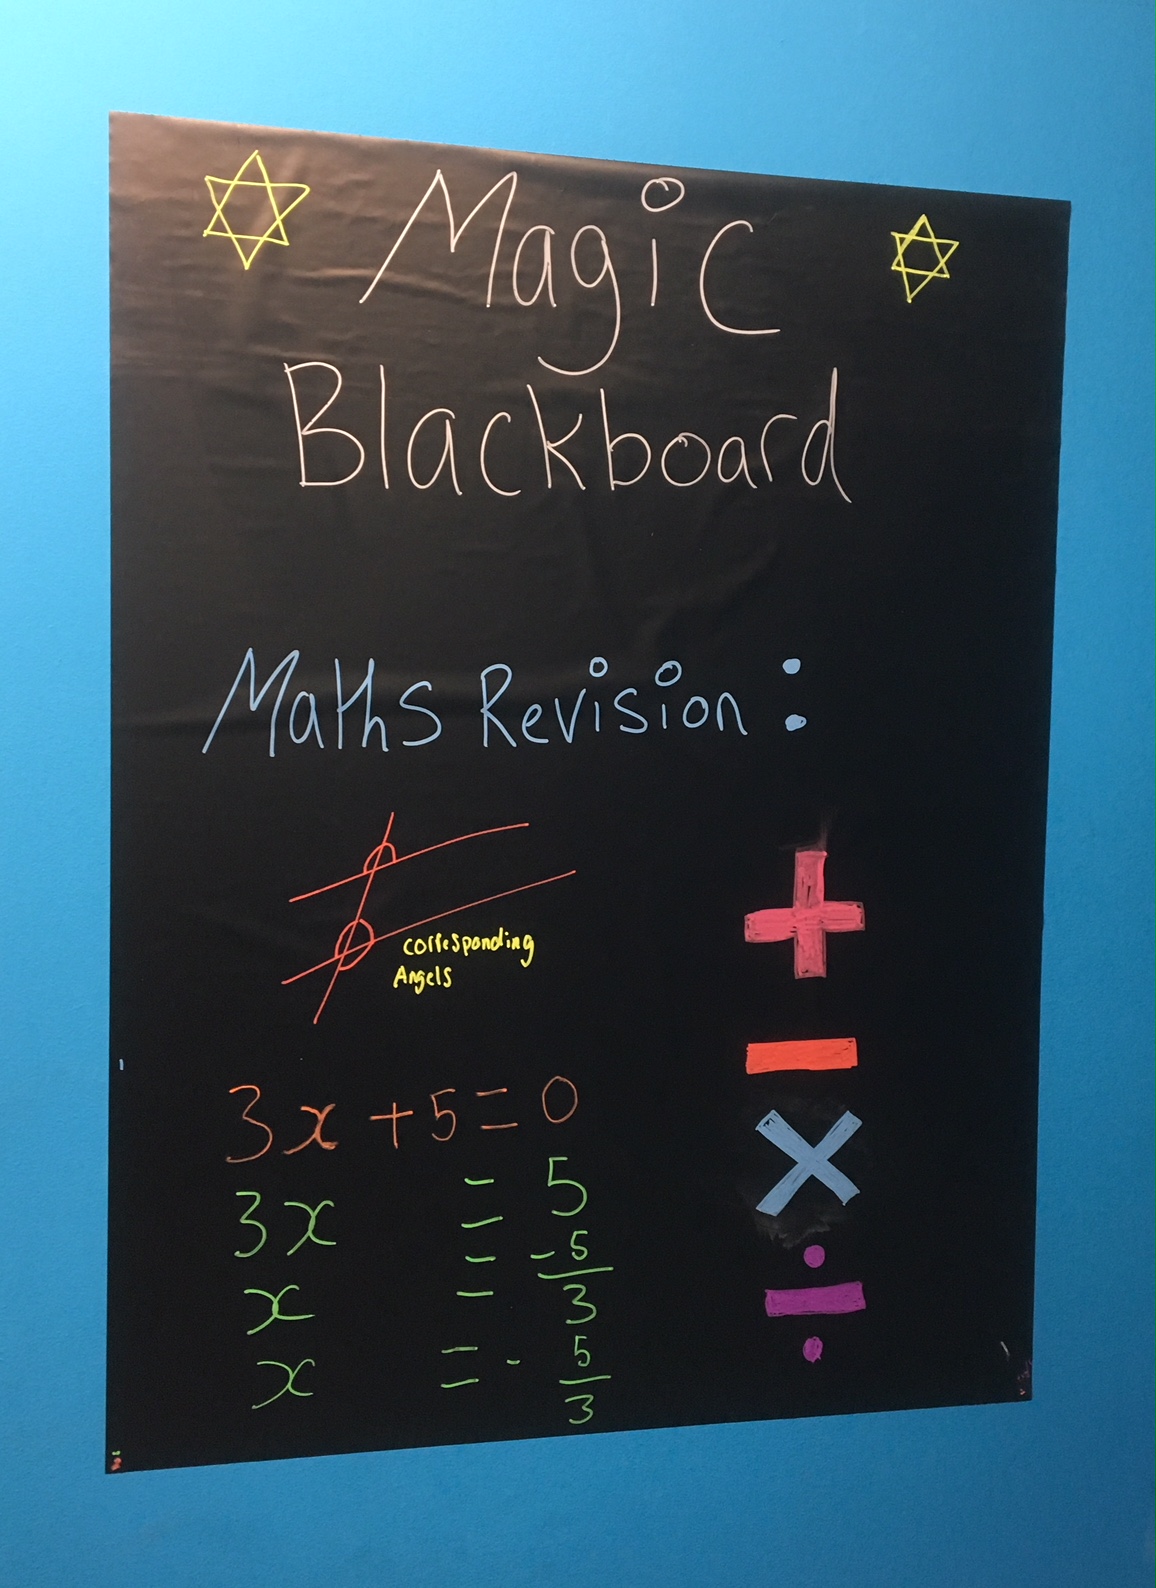 Magic
Blackboard
Maths Revision :
corresponding
Angels
+
−
×
÷
3x + 5 = 0
3x = 5
x = -5/3
x = - 5/3